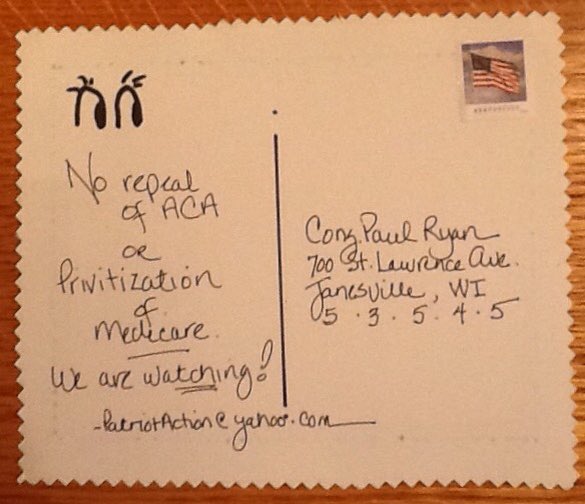 No repeal
of ACA
or
Privitization
of
Medicare.
We are watching!
-PatriotAction@yahoo.com
Cong. Paul Ryan
700 St. Lawrence Ave.
Janesville, WI
5 · 3 · 5 · 4 · 5